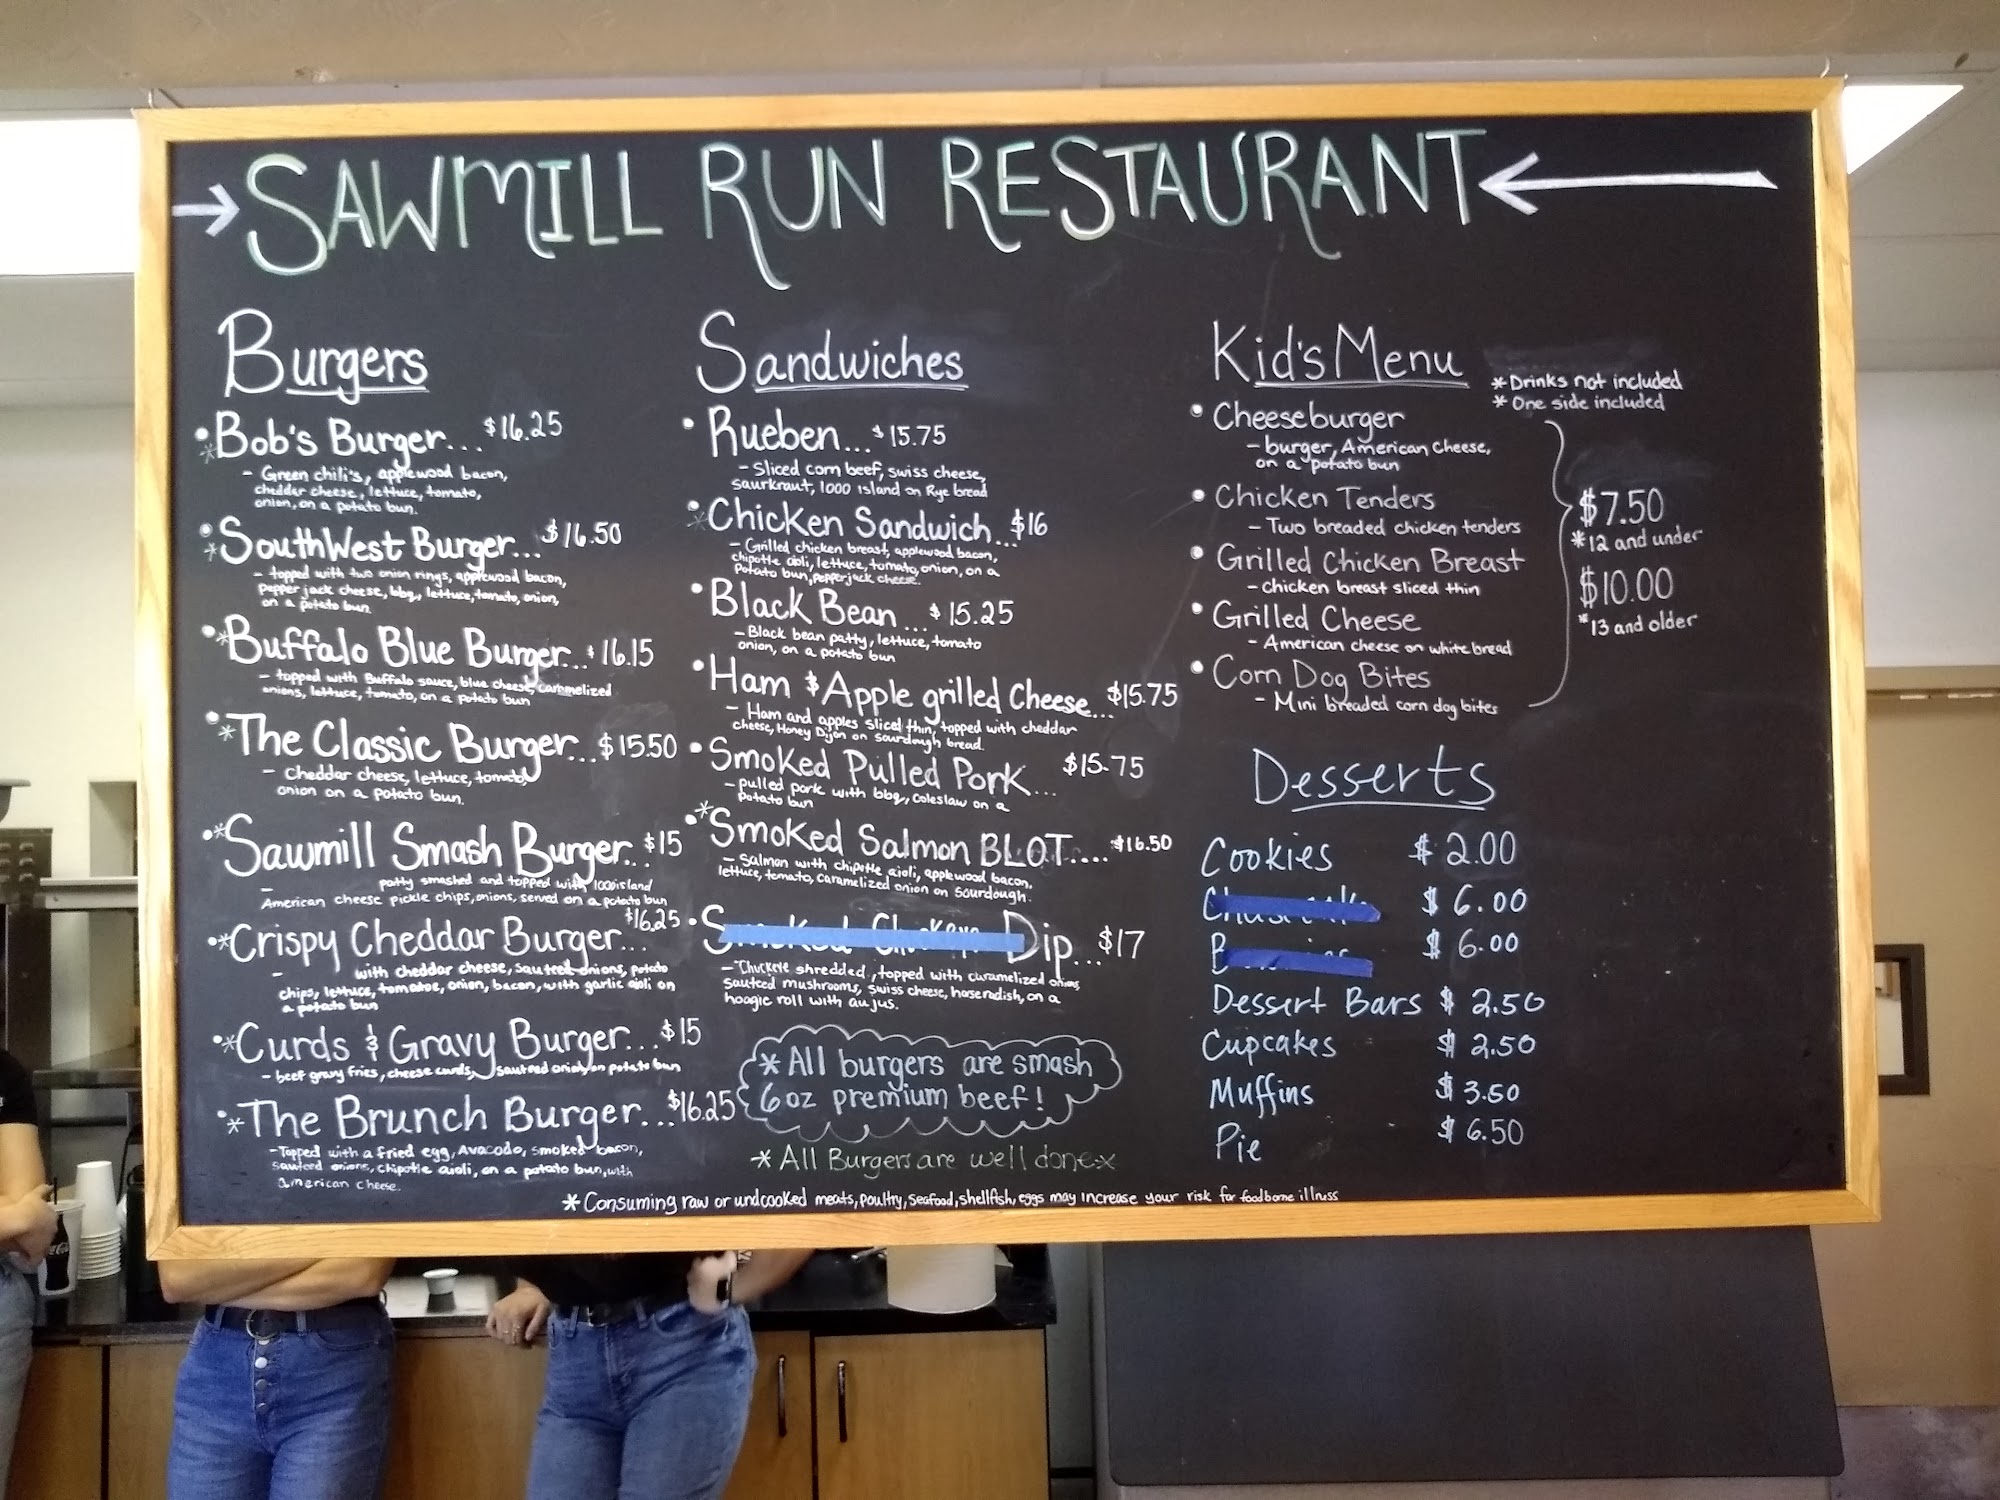 SAWMILL RUN RESTAURANT
Burgers
• * Bob's Burger... $16.25
- Green chili's, applewood bacon,
cheddar cheese, lettuce, tomato,
onion, on a potato bun.
• * SouthWest Burger... $16.50
- topped with two onion rings, applewood bacon,
pepper jack cheese, bbq, lettuce, tomato, onion,
on a potato bun.
• * Buffalo Blue Burger... $16.15
- topped with Buffalo sauce, blue cheese, caramelized
onions, lettuce, tomato, on a potato bun
• * The Classic Burger... $15.50
- Cheddar cheese, lettuce, tomato,
onion on a potato bun.
• * Sawmill Smash Burger... $15
- patty smashed and topped with 1000island
American cheese pickle chips, onions, served on a potato bun
• * Crispy Cheddar Burger... $16.25
- with cheddar cheese, sauteed onions, potato
chips, lettuce, tomatoe, onion, bacon, with garlic aioli on
a potato bun
• * Curds & Gravy Burger... $15
- beef gravy fries, cheese curds, sauteed onion, on potato bun
• * The Brunch Burger... $16.25
- Topped with a fried egg, Avacado, smoked bacon,
sauteed onions, chipotle aioli, on a potato bun, with
american cheese.
Sandwiches
• Rueben... $15.75
- Sliced corn beef, swiss cheese,
saurkraut, 1000 island on Rye bread
• * Chicken Sandwich... $16
- Grilled chicken breast, applewood bacon,
chipotle aioli, lettuce, tomato, onion, on a
Potato bun, pepperjack cheese.
• Black Bean... $15.25
- Black bean patty, lettuce, tomato
onion, on a potato bun
• Ham & Apple grilled Cheese... $15.75
- Ham and apples sliced thin, topped with cheddar
cheese, Honey Dijon on sourdough bread.
• Smoked Pulled Pork... $15.75
- pulled pork with bbq, coleslaw on a
potato bun
• * Smoked Salmon BLOT.... $16.50
- Salmon with chipotle aioli, applewood bacon,
lettuce, tomato, caramelized onion on sourdough.
• Dip... $17
- shredded, topped with caramelized onions
sauteed mushrooms, swiss cheese, horseradish, on a
hoagie roll with aujus.
* All burgers are smash
6oz premium beef!
* All Burgers are well done *
* Consuming raw or undcooked meats, poultry, seafood, shellfish, eggs may increase your risk for foodborne illness
Kid's Menu
* Drinks not included
* One side included
• Cheeseburger
- burger, American Cheese,
on a potato bun
• Chicken Tenders
- Two breaded chicken tenders
• Grilled Chicken Breast
- chicken breast sliced thin
• Grilled Cheese
- American cheese on white bread
• Corn Dog Bites
- Mini breaded corn dog bites
$7.50
*12 and under
$10.00
*13 and older
Desserts
Cookies $2.00
$6.00
$6.00
Dessert Bars $2.50
Cupcakes $2.50
Muffins $3.50
Pie $6.50